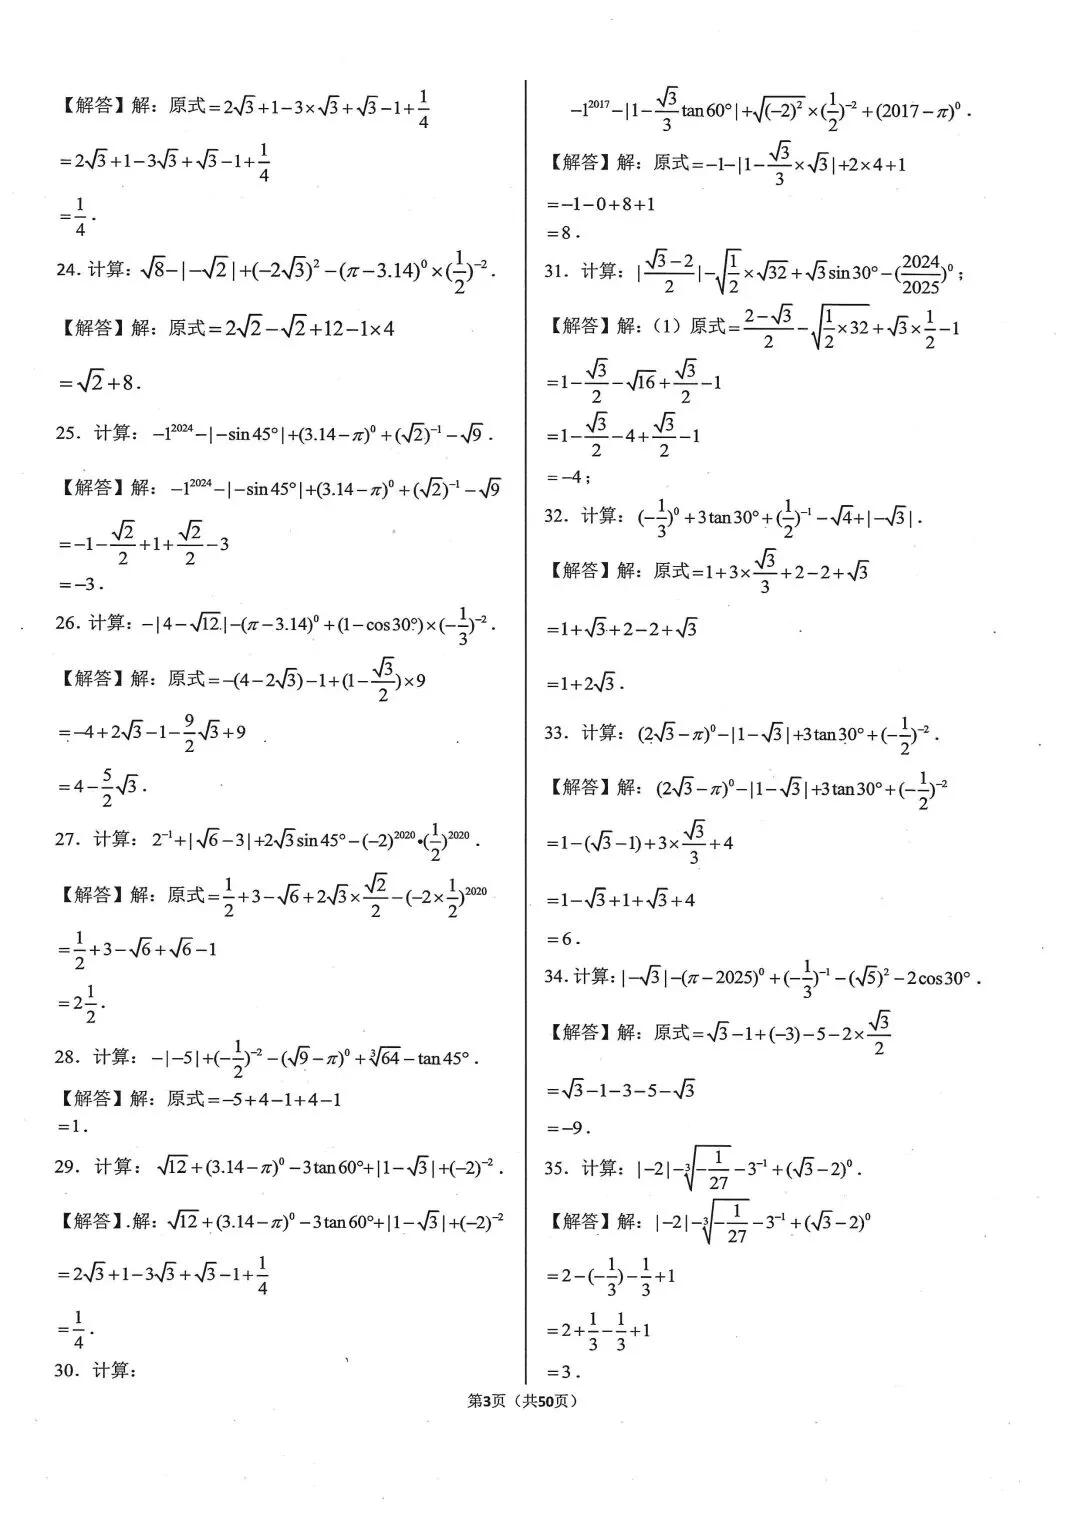 【解答】解：原式=2√3+1-3×√3+√3-1+1/4
=2√3+1-3√3+√3-1+1/4
=1/4.
24. 计算：√8-|-√2|+(-2√3)²-(π-3.14)⁰×(1/2)⁻².
【解答】解：原式=2√2-√2+12-1×4
=√2+8.
25. 计算：-1²⁰²⁴-|-sin45°|+(3.14-π)⁰+(√2)⁻¹-√9.
【解答】解：-1²⁰²⁴-|-sin45°|+(3.14-π)⁰+(√2)⁻¹-√9
=-1-√2/2+1+√2/2-3
=-3.
26. 计算：-|4-√12|-(π-3.14)⁰+(1-cos30°)×(-1/3)⁻².
【解答】解：原式=-(4-2√3)-1+(1-√3/2)×9
=-4+2√3-1-9/2√3+9
=4-5/2√3.
27. 计算：2⁻¹+|√6-3|+2√3sin45°-(-2)²⁰²⁰•(1/2)²⁰²⁰.
【解答】解：原式=1/2+3-√6+2√3×√2/2-(-2×1/2)²⁰²⁰
=1/2+3-√6+√6-1
=2 1/2.
28. 计算：-|-5|+(-1/2)⁻²-(√9-π)⁰+³√64-tan45°.
【解答】解：原式=-5+4-1+4-1
=1.
29. 计算：√12+(3.14-π)⁰-3tan60°+|1-√3|+(-2)⁻².
【解答】.解：√12+(3.14-π)⁰-3tan60°+|1-√3|+(-2)⁻²
=2√3+1-3√3+√3-1+1/4
=1/4.
30. 计算：
-1²⁰¹⁷-|1-√3/3 tan60°|+√(-2)²×(1/2)⁻²+(2017-π)⁰.
【解答】解：原式=-1-|1-√3/3×√3|+2×4+1
=-1-0+8+1
=8.
31. 计算：|(√3-2)/2|-√(1/2)×√32+√3sin30°-(2024/2025)⁰；
【解答】解：（1）原式=(2-√3)/2-√(1/2×32)+√3×1/2-1
=1-√3/2-√16+√3/2-1
=1-√3/2-4+√3/2-1
=-4；
32. 计算：(-1/3)⁰+3tan30°+(1/2)⁻¹-√4+|-√3|.
【解答】解：原式=1+3×√3/3+2-2+√3
=1+√3+2-2+√3
=1+2√3.
33. 计算：(2√3-π)⁰-|1-√3|+3tan30°+(-1/2)⁻².
【解答】解：(2√3-π)⁰-|1-√3|+3tan30°+(-1/2)⁻²
=1-(√3-1)+3×√3/3+4
=1-√3+1+√3+4
=6.
34. 计算：|-√3|-(π-2025)⁰+(-1/3)⁻¹-(√5)²-2cos30°.
【解答】解：原式=√3-1+(-3)-5-2×√3/2
=√3-1-3-5-√3
=-9.
35. 计算：|-2|-³√(-1/27)-3⁻¹+(√3-2)⁰.
【解答】解：|-2|-³√(-1/27)-3⁻¹+(√3-2)⁰
=2-(-1/3)-1/3+1
=2+1/3-1/3+1
=3.
第3页（共50页）